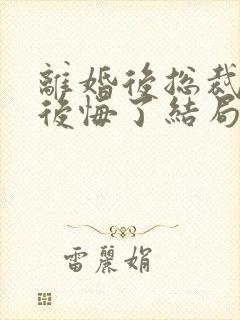 離婚後総裁
後悔了結局
雷麗娟